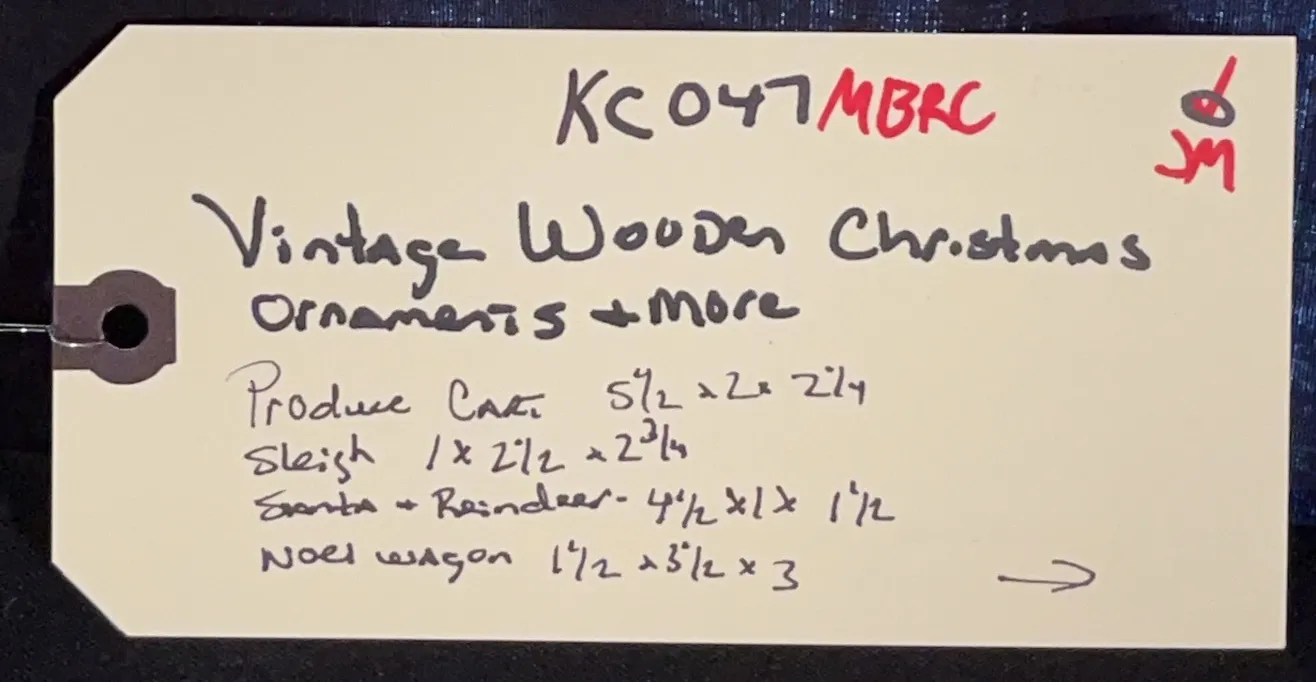 KC047 MBRC
JM
Vintage Wooden Christmas
Ornaments + More
Produce Cart 5 1/2 x 2 x 2 1/4
Sleigh 1 x 2 1/2 x 2 3/4
Santa + Reindeer - 4 1/2 x 1 x 1 1/2
Noel wagon 1 1/2 x 3 1/2 x 3
→